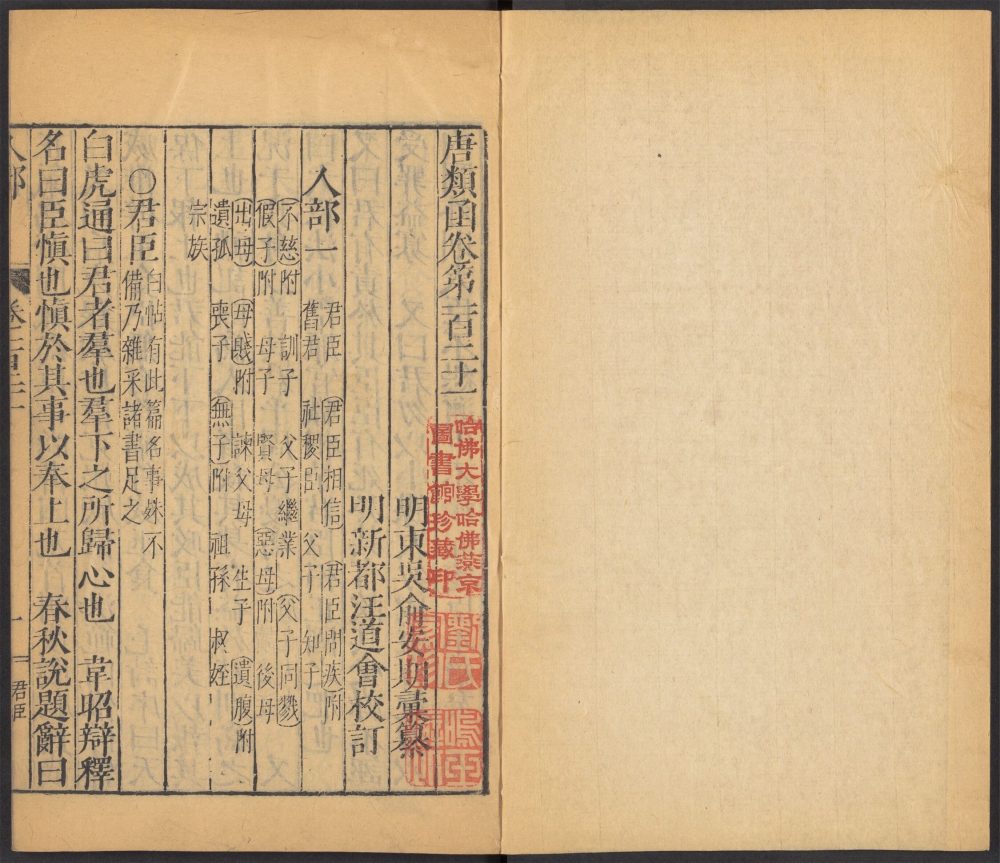 唐類函卷第一百二十一
明東吳俞安期彙纂
明新都汪道會校訂
人部一
君臣 君臣相信 君臣問疾附
舊君 社稷臣 父子 知子
不慈附 訓子 父子繼業 父子同戮
假子附 母子 賢母 惡母附 後母
出母 母賤附 諫父母 生子 遺腹附
遺孤 喪子 無子附 祖孫 叔姪
宗族
○君臣 白帖有此篇名事姝不
備乃雜采諸書足之
白虎通曰君者羣也羣下之所歸心也 韋昭辯釋
名曰臣慎也慎於其事以奉上也 春秋說題辭曰
人部
一
君臣
哈佛大學哈佛燕京
圖書館珍藏印